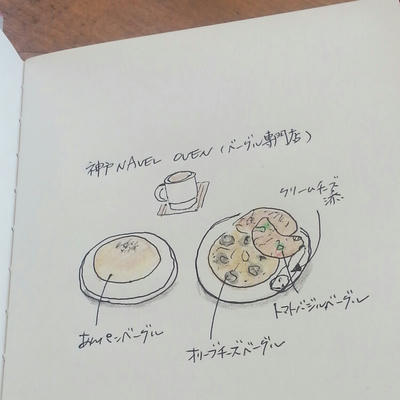 神戸 NAVEL OVEN (ベーグル専門店)
クリームチーズ
添
あんパンベーグル
オリーブチーズベーグル
トマトバジルベーグル